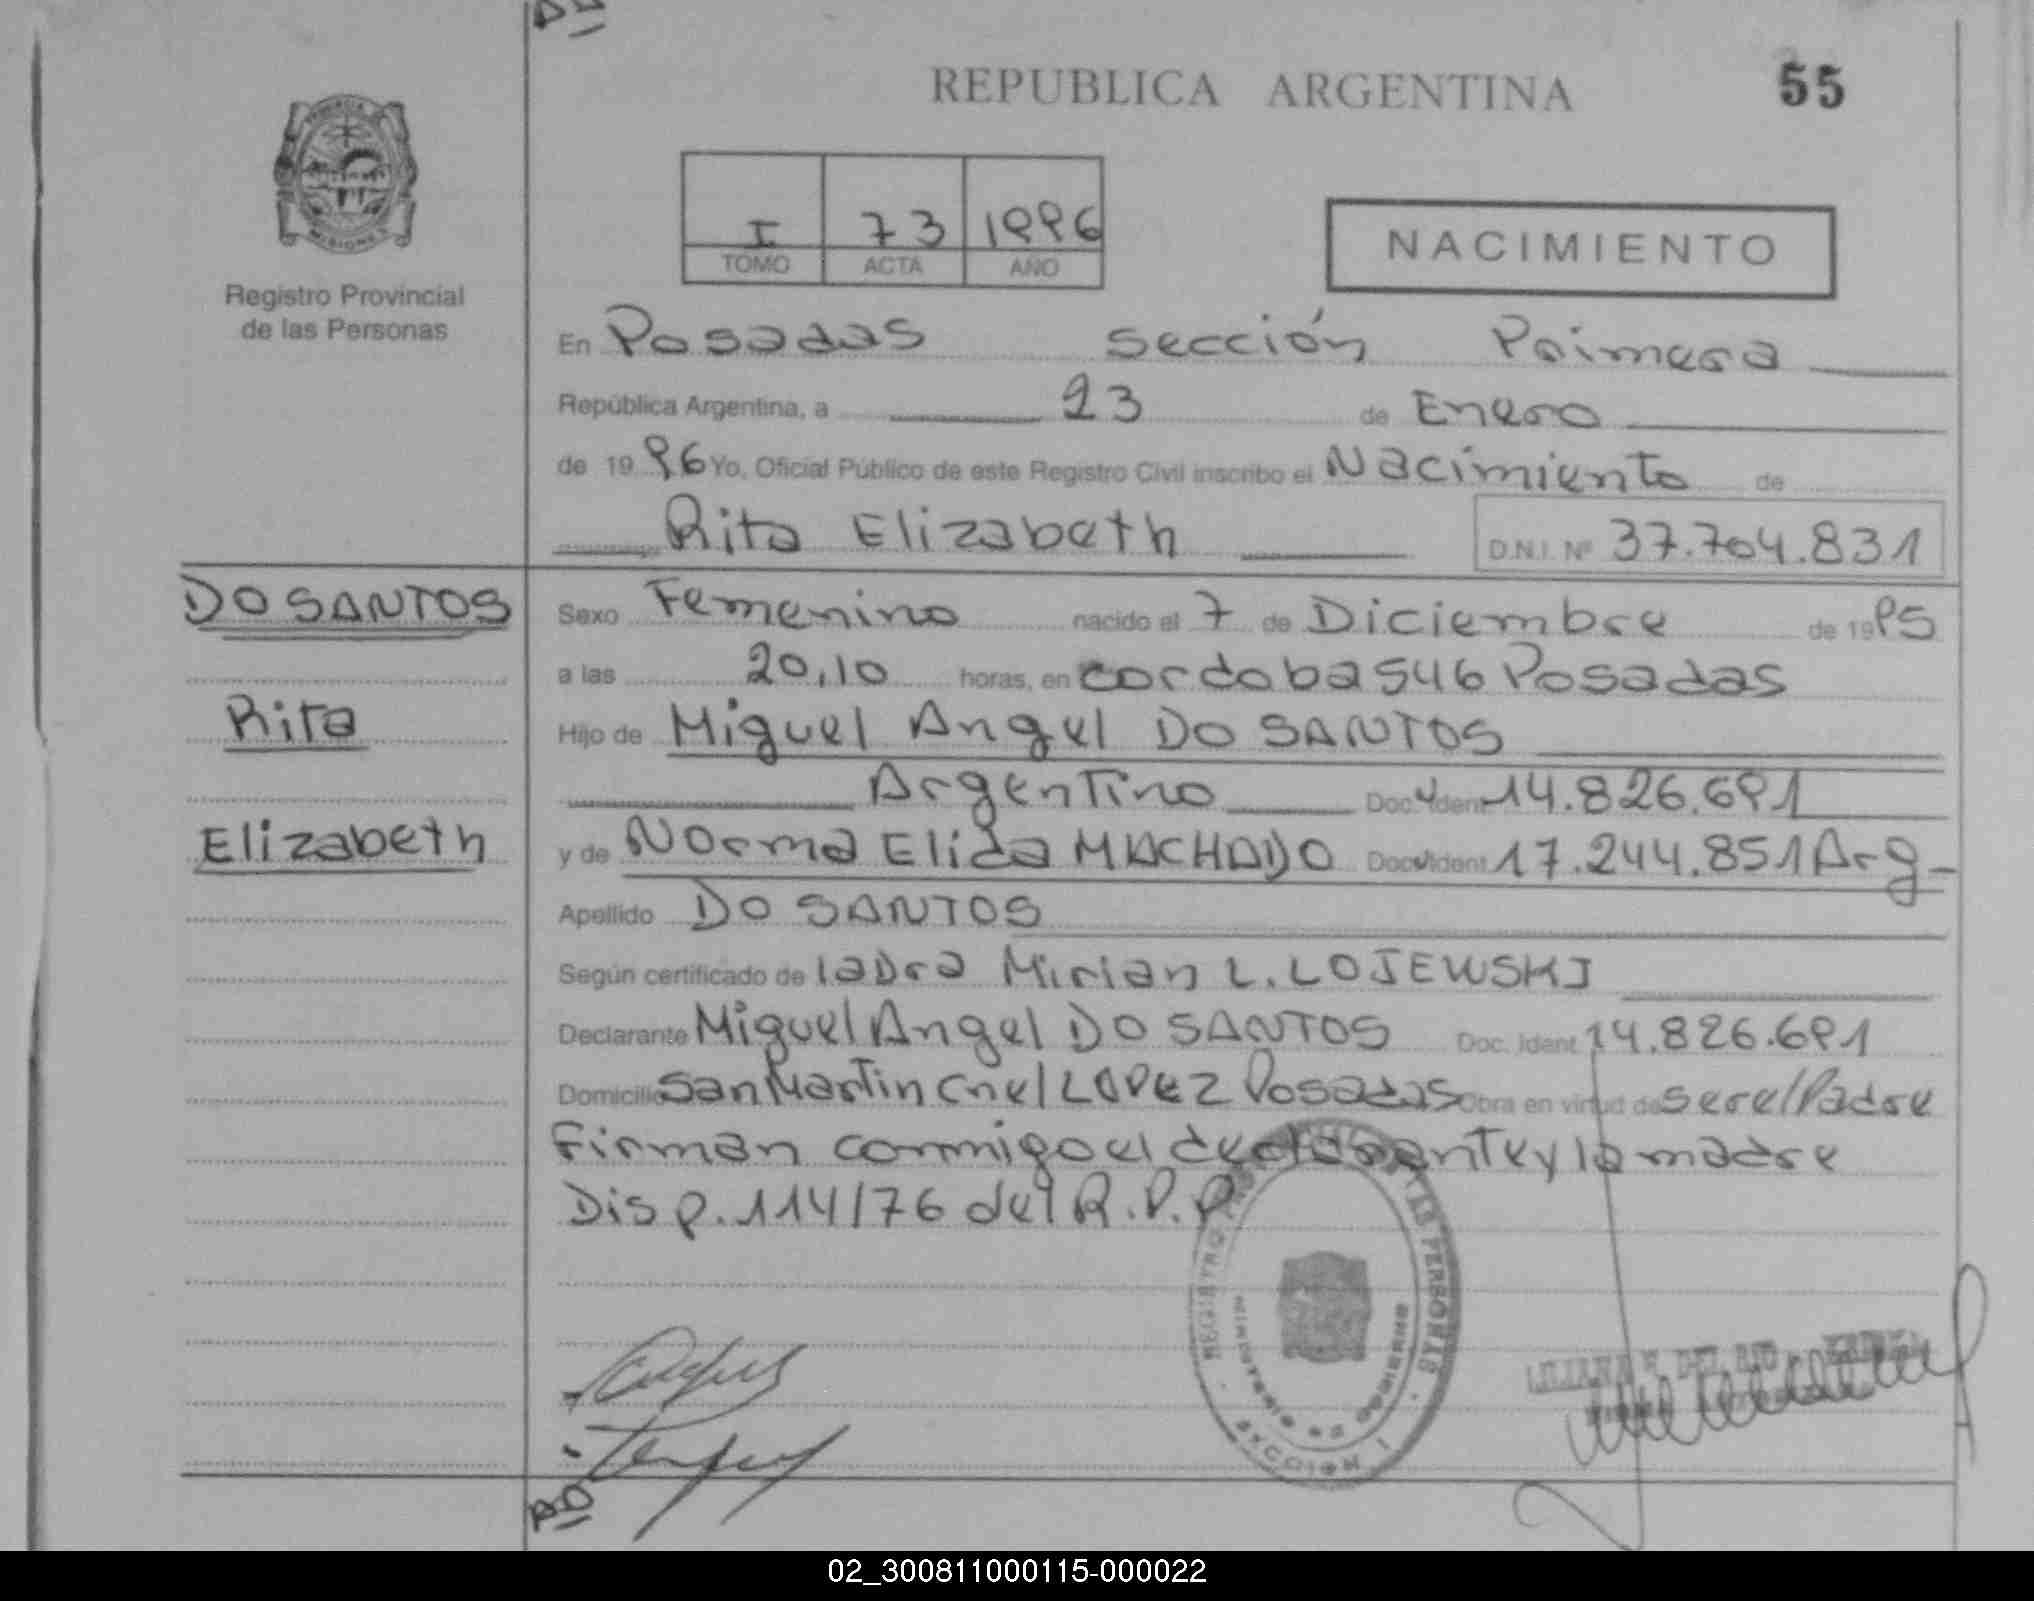 REPUBLICA ARGENTINA 55
PROVINCIA
MISIONES
Registro Provincial
de las Personas
I 73 1996
TOMO ACTA AÑO
NACIMIENTO
En Posadas sección Primera
República Argentina, a 23 de Enero
de 1996 Yo, Oficial Público de este Registro Civil inscribo el Nacimiento de
Rita Elizabeth D.N.I. Nº 37.704.831
DO SANTOS
Rita
Elizabeth
Sexo Femenino nacido el 7 de Diciembre de 1995
a las 20,10 horas, en cordoba 546 Posadas
Hijo de Miguel Angel DO SANTOS
Argentino Doc. Ident 14.826.691
y de Norma Elida MACHADO Doc. Ident 17.244.851 Arg-
Apellido DO SANTOS
Según certificado de la Dra Mirian L. LOJEWSKI
Declarante Miguel Angel DO SANTOS Doc. Ident 14.826.691
Domicilio San Martin Cnel LOPEZ Posadas Obra en virtud de ser el Padre
Firman conmigo el declarante y la madre
Disp. 114/76 del R.P.P
REGISTRO DE LAS PERSONAS
MINISTERIO DE GOBIERNO
SECCION I
LILIANA DEL RIO
02_300811000115-000022